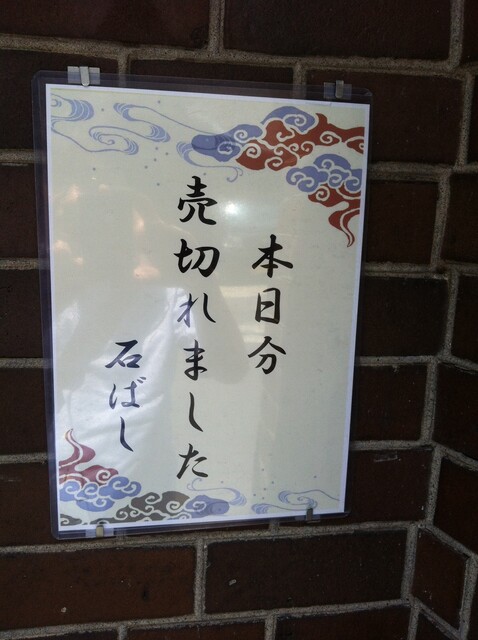 本日分
売切れました
石ばし